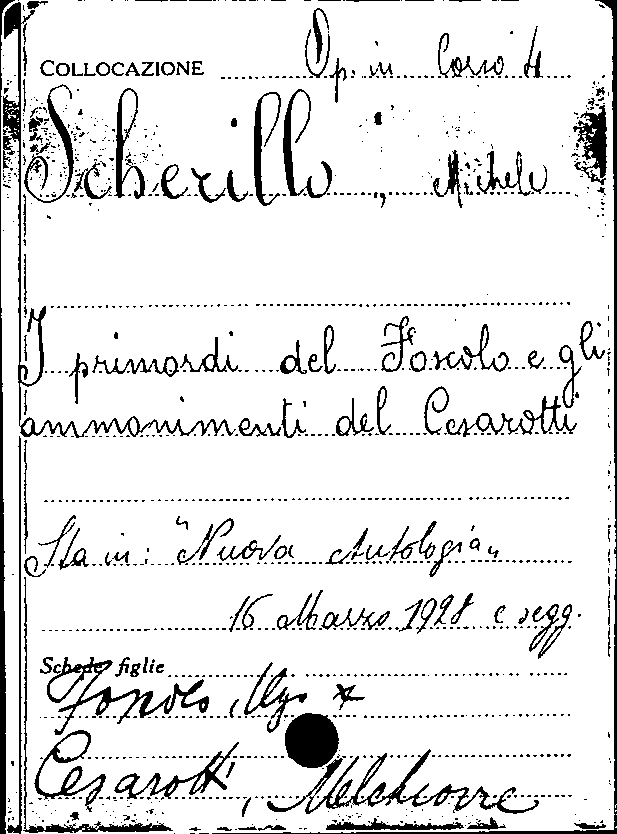 COLLOCAZIONE Op. in Corso 4
Scherillo, Michele
I primordi del Foscolo e gli
ammonimenti del Cesarotti
Sta in: "Nuova Antologia"
16 Marzo 1928 e segg.
Schede figlie
Foscolo, Ugo *
Cesarotti, Melchiorre